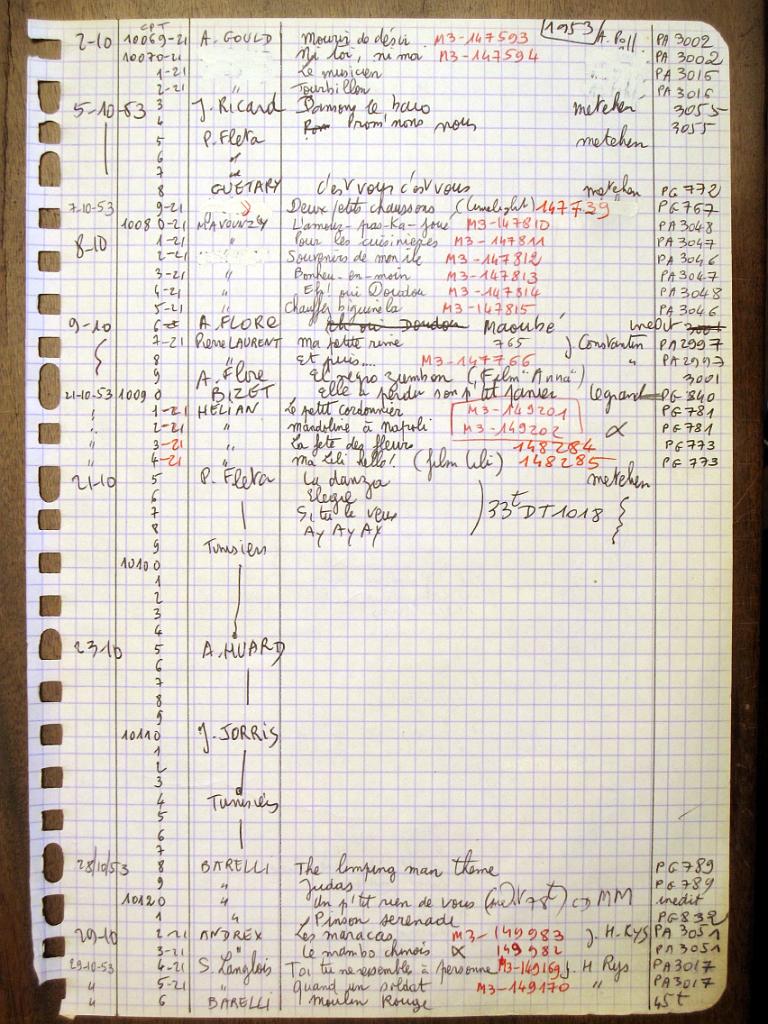 CPT 1953
2-10 10069-21 A. GOULD Mourir de désir M3-147593 A. Poll PA 3002
10070-21 " Ni toi, ni moi M3-147594 PA 3002
1-21 Le musicien PA 3016
2-21 " Tourbillon PA 3016
5-10-53 3 J. Ricard metehen 3055
4 Prom'nons nous 3055
5 P. Fleta metehen
6 "
7 "
8 GUETARY C'est vous c'est vous metehen PG 772
7-10-53 9-21 " Deux petits chaussons (Limelight) 147739 PG 767
1008 0-21 L'amou-pas-Ka-joué M3-147810 PA 3048
8-10 1-21 " Pour les cuisinières M3-147811 PA 3047
2-21 Souvenirs de mon ile M3-147812 PA 3046
3-21 " Bonheu-en-moin M3-147813 PA 3047
4-21 " Eh! oui Doudou M3-147814 PA 3048
5-21 Chauffez biguine la M3-147815 PA 3046
9-10 6 A. FLORE Eh oui Doudou Maoubé inedit 3001
7-21 Pierre LAURENT Ma petite reine 765 J Constantin PA 2997
8 " Et puis.... M3-147766 " PA 2997
9 A. Flore El negro zumbon (Film "Anna") 3001
21-10-53 1009 0 BIZET Elle a perdu son p'tit panier Legrand PG 840
1-21 HELIAN Le petit cordonnier M3-149201 PG 781
" 2-21 " Mandoline à Napoli M3-149202 ∝ PG 781
" 3-21 " La fete des fleurs 148284 PG 773
" 4-21 " Ma Lili hello! (film Lili) 148285 PG 773
21-10 5 P. Fleta La danza metehen
6 Elegie
7 Si tu le veux ) 33t DT 1018
8 Ay Ay Ay
9 Tunisien
1010 0
1
2
3
4
23-10 5 A. HUARD
6
7
8
9
1011 0 J. JORRIS
1
2
3
4 Tunisiens
5
6
7
28/10/53 8 BARELLI The limping man theme PG 789
9 " Judas PG 789
1012 0 " Un p'tit rien de vous MM inedit
1 " Pinson serenade PG 832
29-10 2-21 ANDREX Les maracas M3-149983 J. H. RYS PA 3051
3-21 " Le mambo chinois ∝ 149982 PA 3051
29-10-53 4-21 S. Langlois Toi tu ne ressemble à personne M3-149169 J. H Rys PA 3017
" 5-21 " Quand un soldat M3-149170 " PA 3017
" 6 BARELLI Moulin Rouge 45t